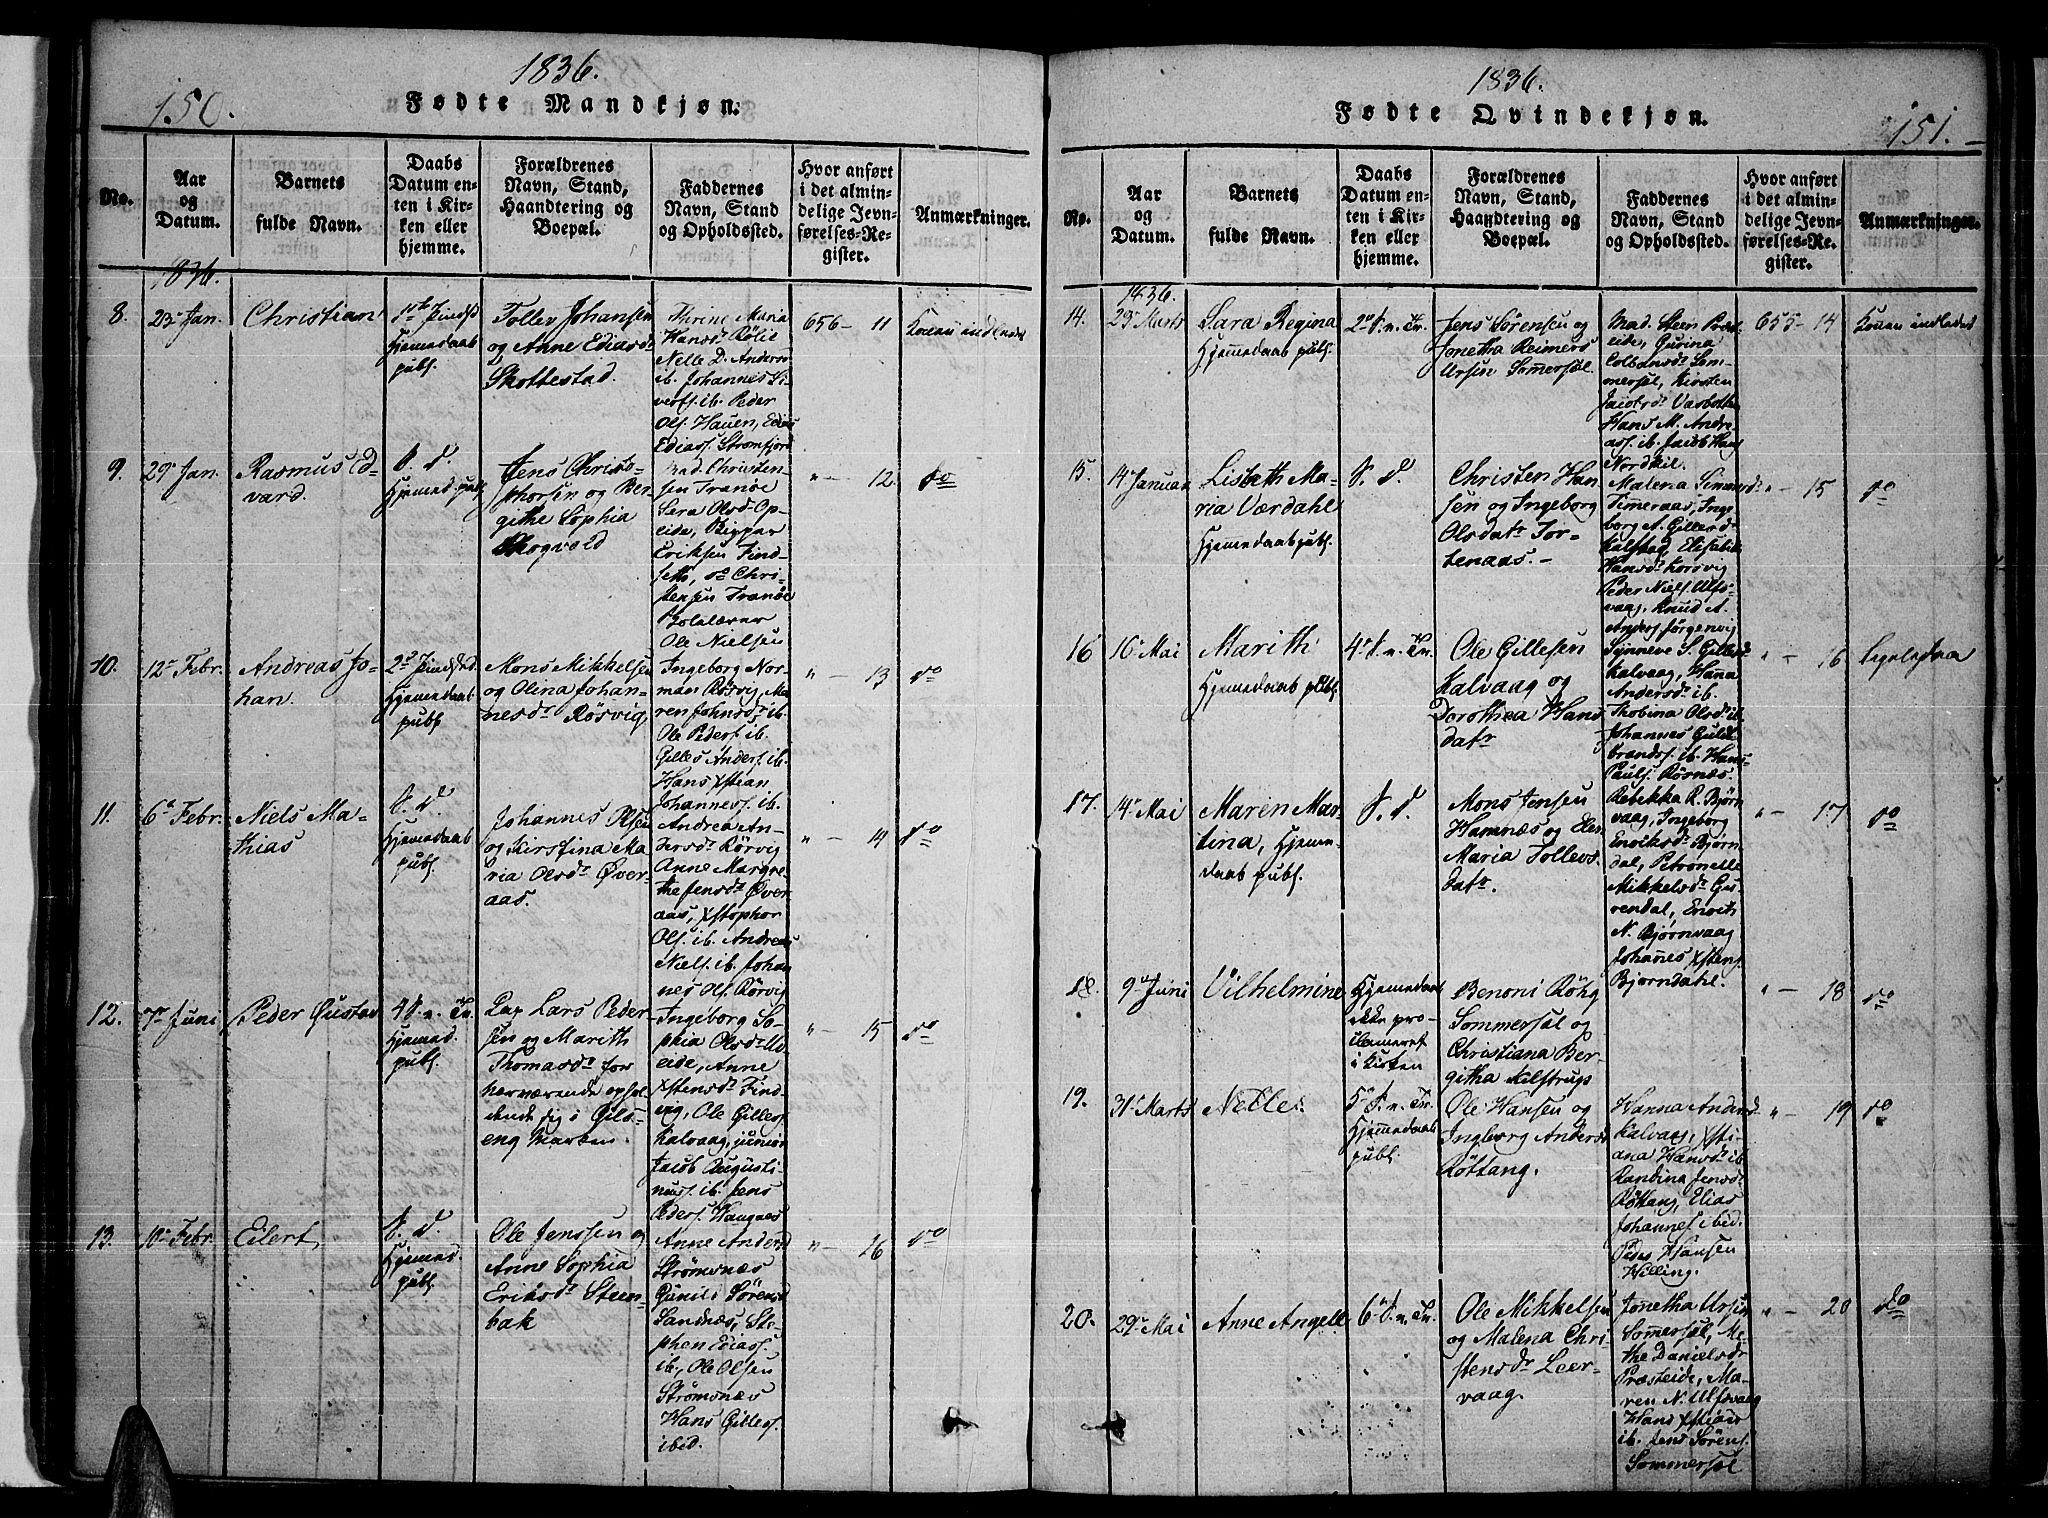 150.
1836.
Fødte Mandkjøn.
No.
Aar
og
Datum.
Barnets
fulde Navn.
Daabs
Datum en-
ten i Kir-
ken eller
hjemme.
Forældrenes
Navn, Stand,
Haandtering og
Boepæl.
Faddernes
Navn, Stand
og Opholdssted.
Hvor anført
i det almin-
delige Jevn-
førelses-Re-
gister.
Anmærkninger.
1836.
8.
23 Jan.
Christian
1ste Pindsd
Hjemmedaab
publ.
Tollev Johansen
og Anne Ediasd
Skottestad.
Thrine Maria
Hansd Rølie
Nelle D. Anders
ib. Johannes Si-
vers. ib. Peder
Ols. Hauen, Edias
Ediass. Strømfjord
656 — 11
Konen indledet
9.
29 Jan.
Rasmus Ed-
vard.
S. D.
Hjemmed. publ
Jens Christo-
phersen og Ber-
githe Sophia
Skogvold
Mad. Christen-
sen Tranøe
Sera Olsd Op-
eide,
Eriksen Find-
seth, Chri-
stensen Tranøe
Ole Nielsen
" — 12
do
10.
12 Febr.
Andreas Jo-
han.
2d Pindsd.
Hjemmedaab
publ
Mons Mikkelsen
og Olina Johan-
nesdr Røsvig
Ingeborg Nor-
man Rørvig, Ma-
ren Johnsdr ib.
Ole Peders. ib.
Gilles Anders. ib.
Hans Xstian
Johannes. ib.
" — 13
do
11.
6 Febr.
Niels Ma-
thias
S. D.
Hjemmedaab
publ.
Johannes Olsen
og Kirstina Ma
ria Olsdr Øver-
aas.
Andrea An-
dersdr Rørvig
Anne Margre-
the Jensdr Øver-
aas, Xstophor
Ols. ib. Andreas
Niels. ib. Johan
nes Ols. Rørvig
" — 14
do
12.
7 Juni
Peder Gustav
4 S. e. Tr.
Hjemmed.
publ.
Lap Lars Peder-
sen og Marith
Thomasdr for
nærværende ophol-
dende sig i Gils-
eng Marken.
Ingeborg So-
phia Olsdr
eide, Anne
Xstensdr Find-
eng, Ole Gilles.
Kalvaag, junior
Jacob Augusti-
nuss. ib. Jens
Peders. Haugnes
" — 15
do
13.
10 Febr.
Eilert
S. D.
Hjemmed.
publ.
Ole Jenssen og
Anne Sophia
Eriksdr Steen-
bak
Anne Andersd
Strømsnæs
Gunild Sørensd
Sandnæs, Ste-
phen Ediass.
ib., Ole Olsen
Strømsnæs
Hans Gilless.
ibid.
" — 16
do
1836.
Fødte Qvindekjøn.
151.
No.
Aar
og
Datum.
Barnets
fulde Navn.
Daabs
Datum en-
ten i Kir-
ken eller
hjemme.
Forældrenes
Navn, Stand,
Haandtering og
Boepæl.
Faddernes
Navn, Stand
og Opholdssted.
Hvor anført
i det almin-
delige Jevn-
førelses-Re-
gister.
Anmærkninger.
1836.
14.
29 Marts
Sara Regina
Hjemmedaab publ.
2 S. e. Tr.
Jens Sørensen og
Jonetha Reimers
Ursin Sommersæl.
Mad. Steen Præst
eide, Gurina
Colbensdr Som-
mersæl, Kirsten
Jacobsdr Vasbotten
Hans M. Andre-
ass. ib. Jacob Hans
Nordkil.
655 — 14
Konen indledet
15.
14 Januar
Lisbeth Ma-
ria Værdahl
Hjemmedaab publ.
S. D.
Christen Han
sen og Ingeborg
Olsdatr Tor-
tenaas. —
Malena Simensdr
Timeraas, Inge-
borg A. Gillesdr
Kalfbag, Elisabeth
Hansdr Korsvig
Peder Niels. Ulfs-
vaag, Knud A.
Anders Jørgenvig
" — 15
do
16
16 Mai
Marith
Hjemmedaab publ.
4 S. e. Tr.
Ole Gillesen
Kalvaag og
Dorothea Hans
datr
Synneve S. Gillesdr
Kalvaag, Hana
Andersdr ib.
Thobina Olsdr ib.
Johannes Guld
brands. ib. Hans
Pauls. Rørnæs
" — 16
17.
14 Mai
Maren Mar-
tina, Hjemme-
daab publ.
S. D.
Mons Jensen
Hamnæs og Elen
Maria Tollevs
datr.
Rebekka R. Bjørn
vaag, Ingeborg
Enriksdr Bjørn-
dal, Petronelle
Mikkelsdr Gus-
rendal, Enrich
N. Bjørnvaag
Johannes Xstens.
Bjørndahl.
" — 17
do
18.
9 Juni
Vilhelmine
Hjemmedaab
ikke pro-
clameret
i Kirken
Benoni Røhg
Sommersæl og
Christiana Ber-
githa Kilstrup
" — 18
do
19.
31 Marts
Nelle.
5 S. e. Tr.
Hjemmedaab
publ.
Ole Hansen og
Ingborg Andersd
Røttang.
Hanna Andersd
Kalvaag, Xsti-
ana Hansdr ib.
Randina Jensdr
Røttang, Elias
Johannes. ibid.
Peder Hansen
Hilling.
" — 19
do
20.
29 Mai
Anne Angell
6 S. e. Tr.
Ole Mikkelsen
og Malena Chri-
stensdr Leer-
vaag.
Jonetha Ursin
Sommersæl, Me-
the Danielsdr
Præsteide, Ma-
ren N. Ulfsvaag
Hans Xstians.
ib. Jens Sørens.
Sommersæl
" — 20
do